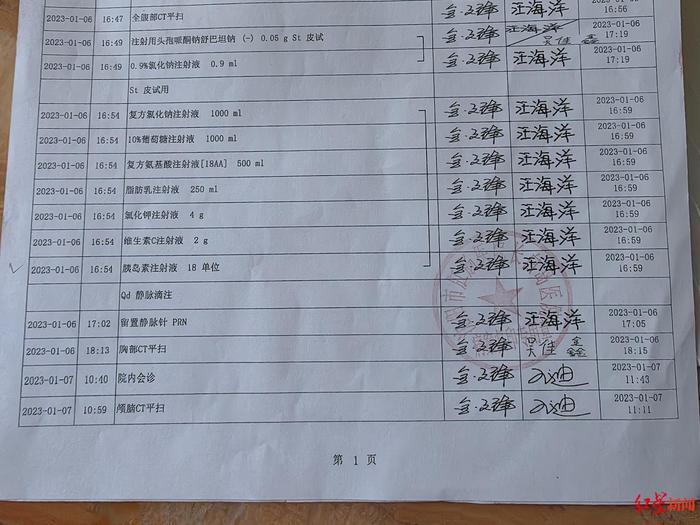 2023-01-06 16:47 全腹部CT平扫 汪海洋 16:56
2023-01-06 16:49 注射用头孢哌酮钠舒巴坦钠 (-) 0.05 g St 皮试 汪海洋 吴佳鑫 2023-01-06 17:19
2023-01-06 16:49 0.9%氯化钠注射液 0.9 ml 汪海洋 2023-01-06 17:19
St 皮试用
2023-01-06 16:54 复方氯化钠注射液 1000 ml 汪海洋 2023-01-06 16:59
2023-01-06 16:54 10%葡萄糖注射液 1000 ml 汪海洋 2023-01-06 16:59
2023-01-06 16:54 复方氨基酸注射液[18AA] 500 ml 汪海洋 2023-01-06 16:59
2023-01-06 16:54 脂肪乳注射液 250 ml 汪海洋 2023-01-06 16:59
2023-01-06 16:54 氯化钾注射液 4 g 汪海洋 2023-01-06 16:59
2023-01-06 16:54 维生素C注射液 2 g 汪海洋 2023-01-06 16:59
2023-01-06 16:54 胰岛素注射液 18 单位 汪海洋 2023-01-06 16:59
Qd 静脉滴注
2023-01-06 17:02 留置静脉针 PRN 汪海洋 2023-01-06 17:05
2023-01-06 18:13 胸部CT平扫 吴佳鑫 2023-01-06 18:15
2023-01-07 10:40 院内会诊 2023-01-07 11:43
2023-01-07 10:59 颅脑CT平扫 2023-01-07 11:11
第 1 页
红星新闻